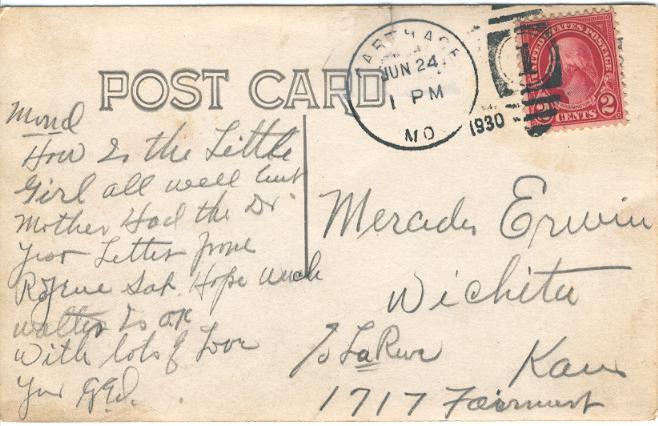 CARTHAGE
JUN 24
1 PM
MO.
1930
UNITED STATES POSTAGE
2 CENTS 2
POST CARD
Mond
How Is the Little
Girl all well but
Mother Had the Dr.
Letter from
Sat. Hope Uncle
Walter Is OK
With lots of Love
Your
Mercedes Erwin
Wichita
Kans
c/o LaRue
1717 Fairmount